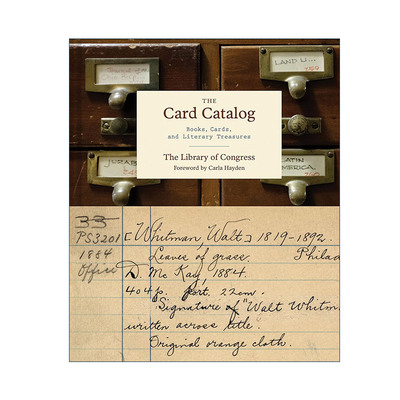 LAND U...
THE
Card Catalog
Books, Cards,
and Literary Treasures
The Library of Congress
Foreword by Carla Hayden
JURA
LATIN
AMERICA.
33
PS3201 [Whitman, Walt] 1819-1892.
1884 Leaves of grass. Philad
Office D. McKay, 1884.
404 p. port. 22cm.
Signature of "Walt Whitm
written across title.
Original orange cloth.